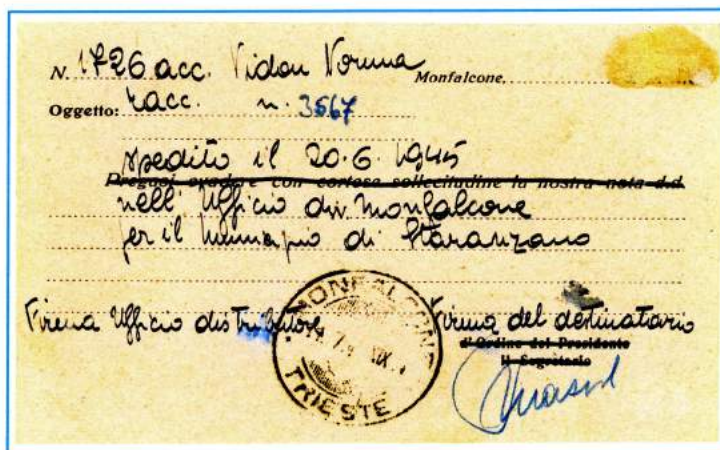 N. 1726 acc. Vidon Norma
Monfalcone,
Oggetto: racc. n. 3567
spedito il 20.6.1945
Pregasi evadere con cortese sollecitudine la nostra nota d.d.
nell'Ufficio di Monfalcone
per il Municipio di Staranzano
MONFALCONE
TRIESTE
Firma Ufficio distributore
Firma del destinatario
d'Ordine del Presidente
Il Segretario